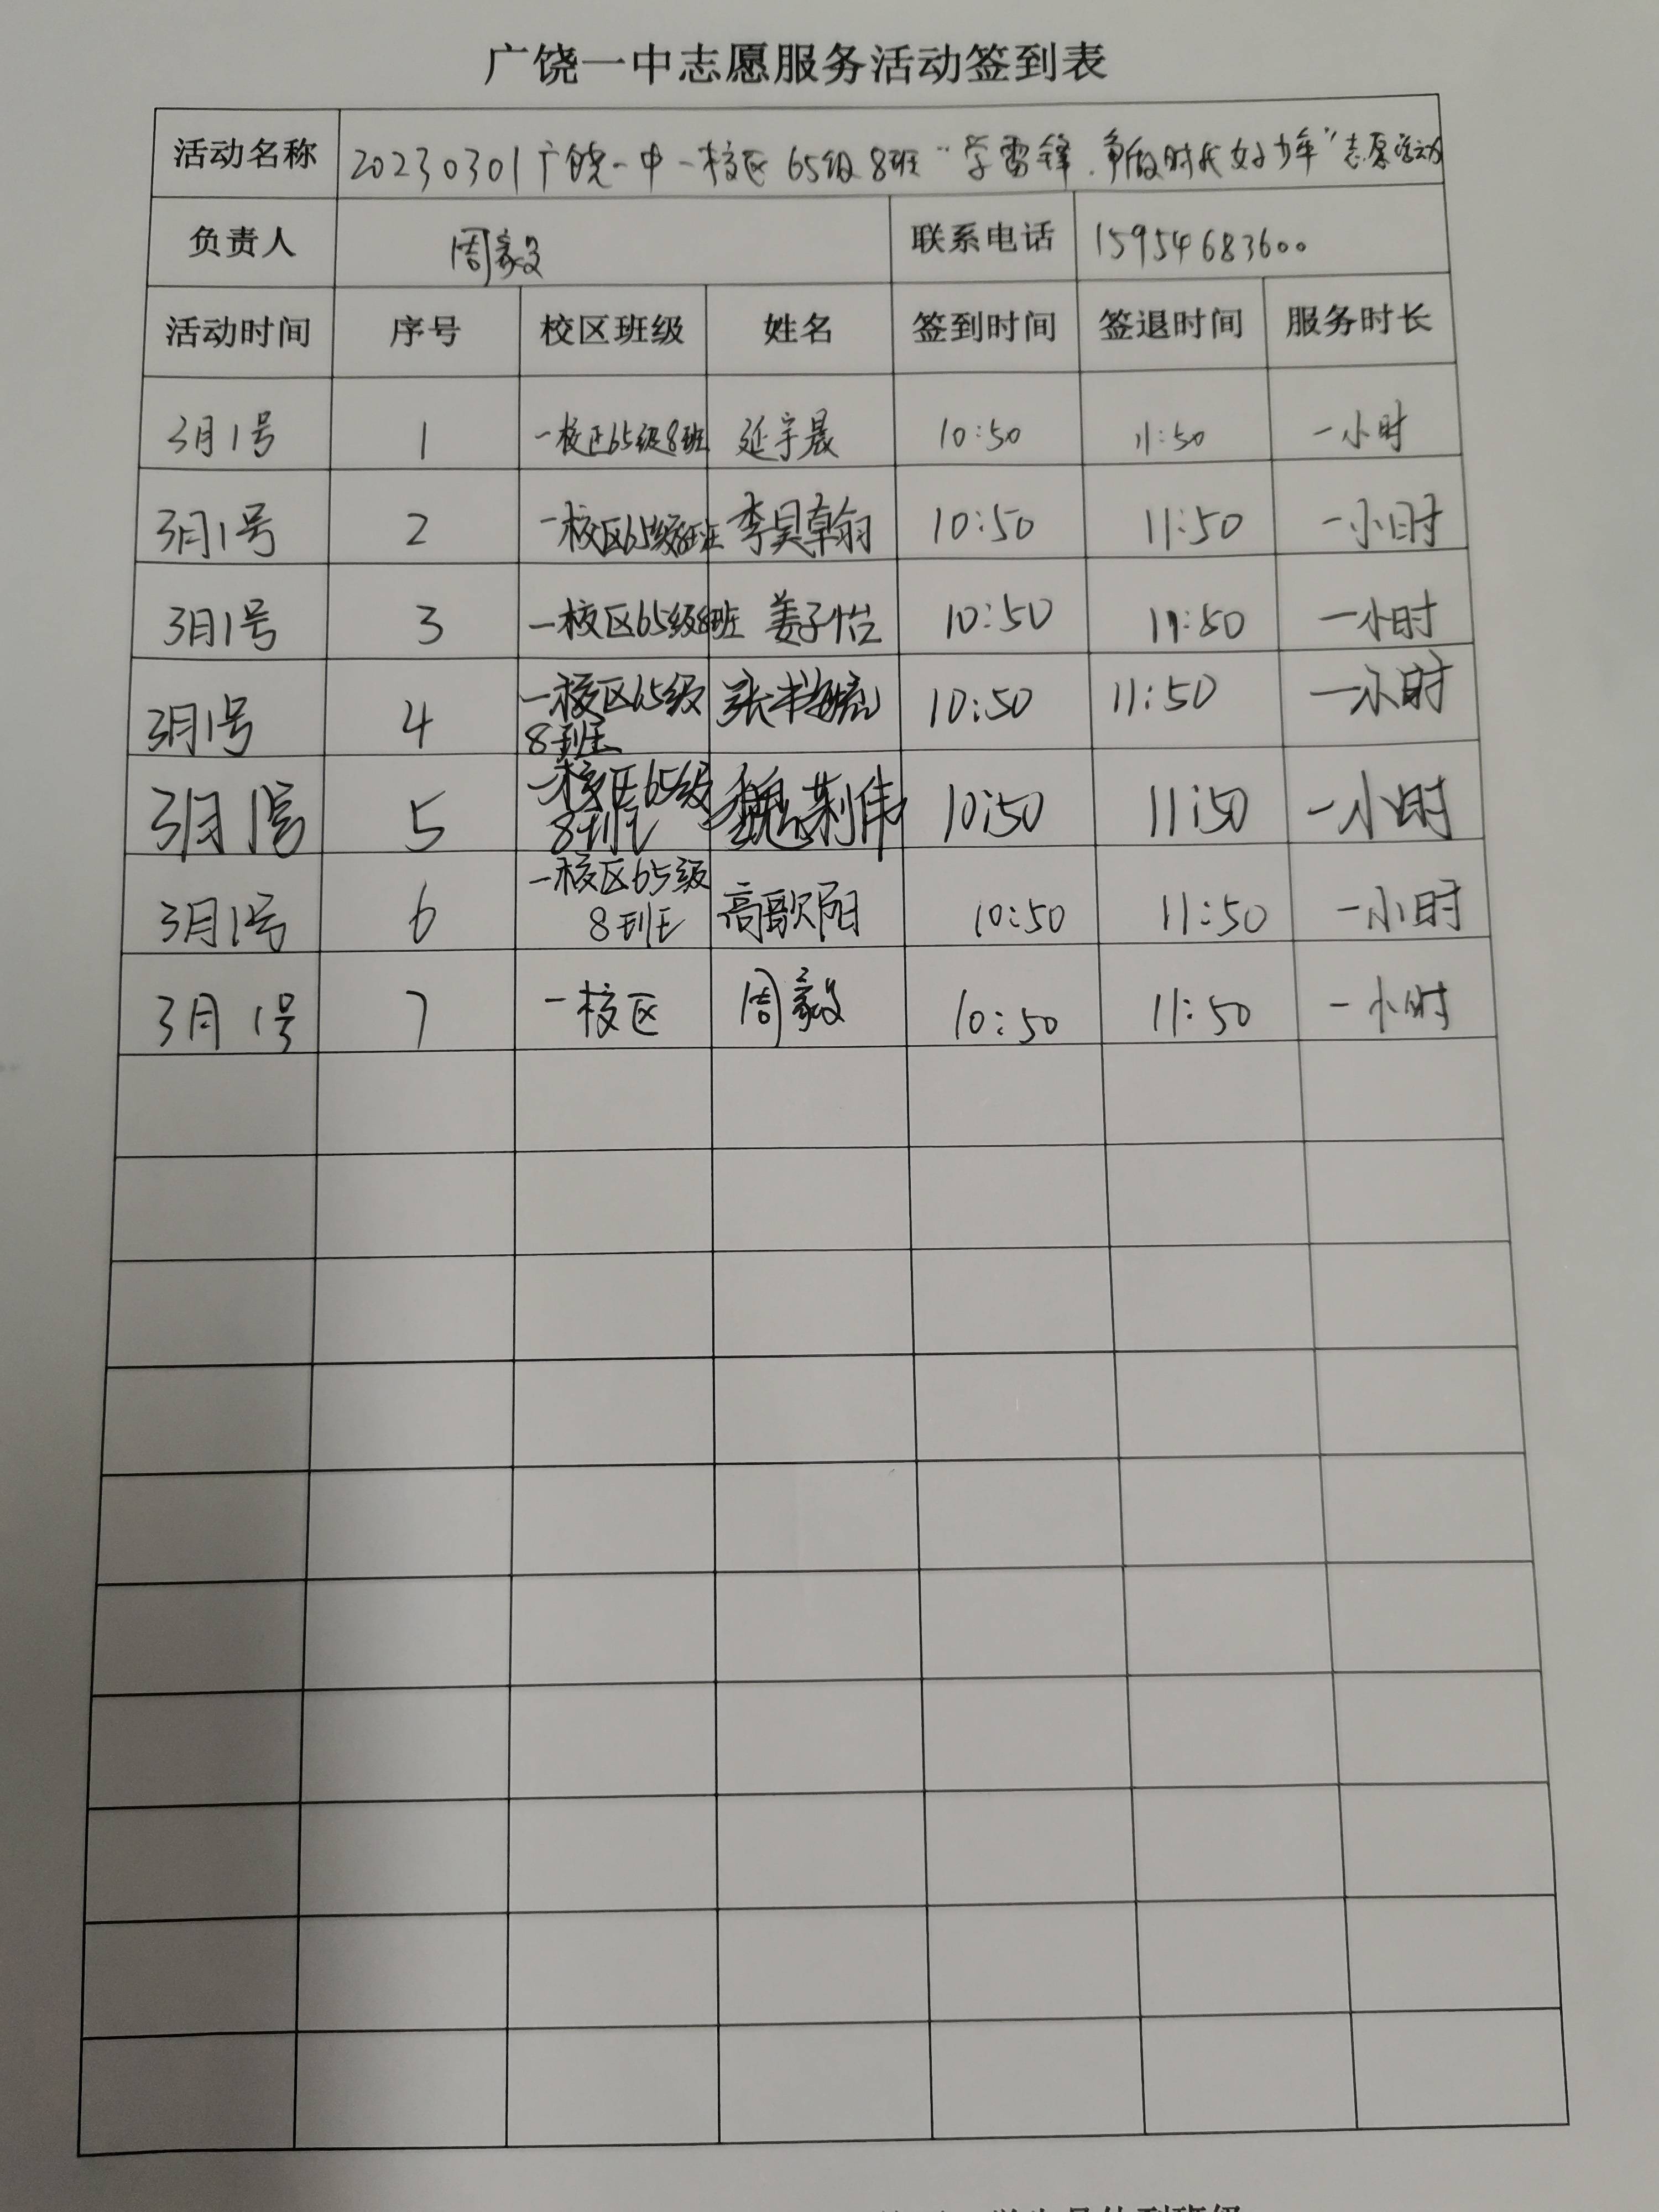 广饶一中志愿服务活动签到表
活动名称 20230301广饶一中一校区65级8班“学雷锋.争做时代好少年”志愿活动
负责人 周毅 联系电话 15954683600
活动时间 序号 校区班级 姓名 签到时间 签退时间 服务时长
3月1号 1 一校区65级8班 延宇晟 10:50 11:50 一小时
3月1号 2 一校区65级8班 李昊翰 10:50 11:50 一小时
3月1号 3 一校区65级8班 姜子怡 10:50 11:50 一小时
3月1号 4 一校区65级
8班 张 10:50 11:50 一小时
3月1号 5 一校区65级
8班 魏荆伟 10:50 11:50 一小时
3月1号 6 一校区65级
8班 高歌阳 10:50 11:50 一小时
3月1号 7 一校区 周毅 10:50 11:50 一小时